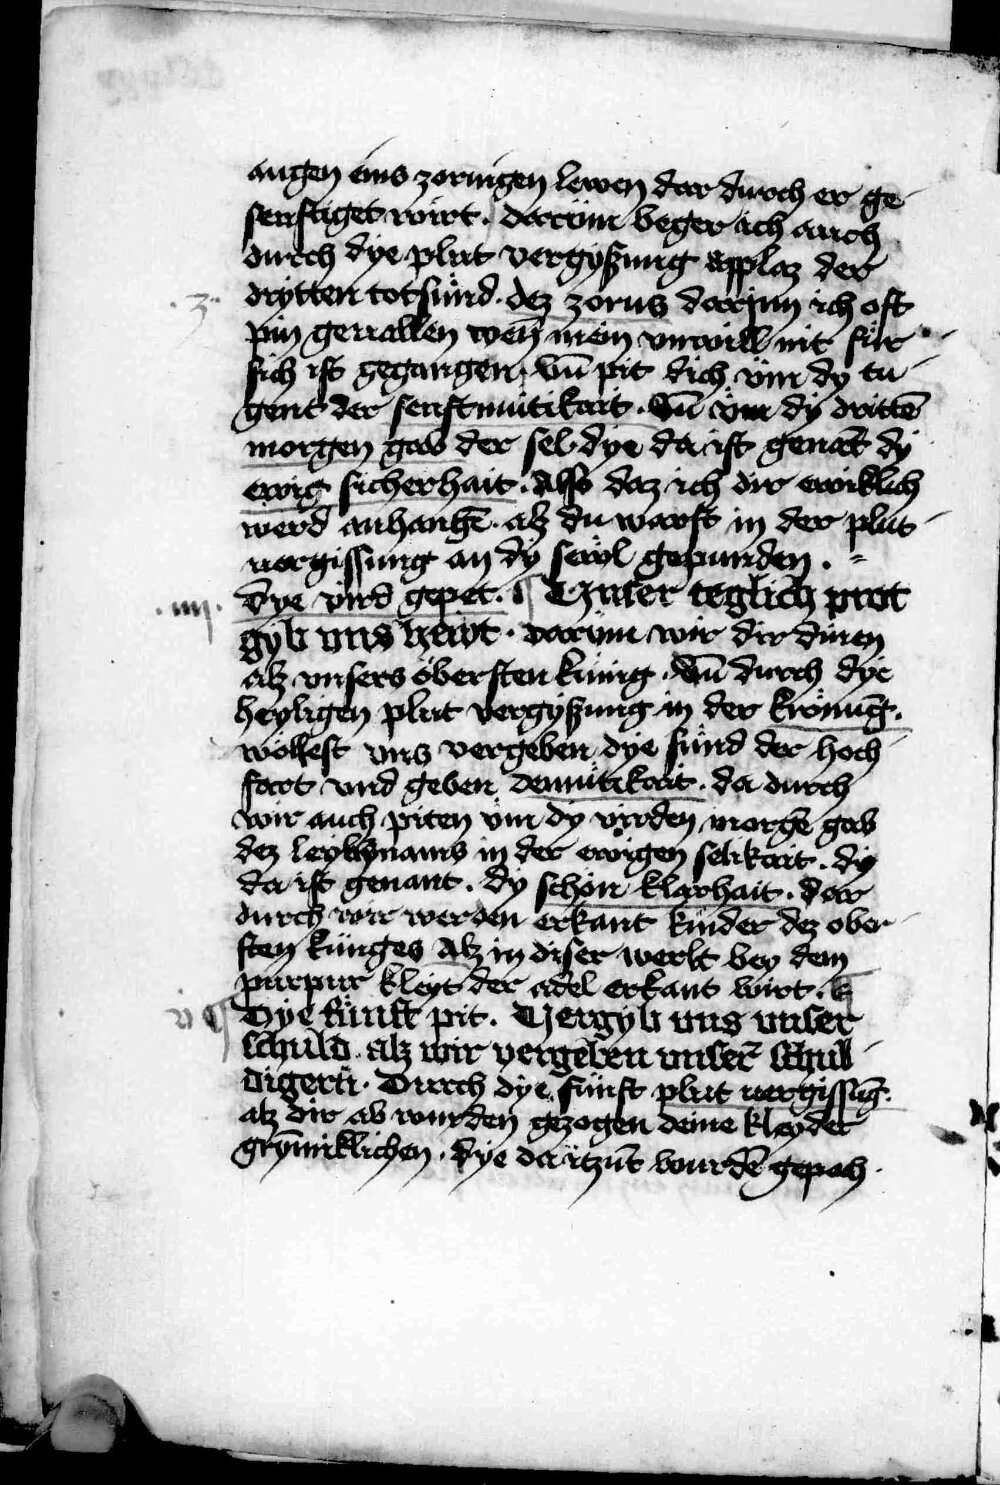 augen eins zornigen lewen dar durch er ge-
senftiget wirt. Darüm beger ich auch
durch dye plut vergyßung applaz der
.3. drytten totsünd. dez zorns darjnn ich oft
pin geuallen wen̄ mein vnwill nit für
sich ist gegangen. Vn̄ pit dich vm̈ dy tu-
gent der senftmütikait. Vn̄ vm̈ dy dritte͞
morgen gab der sel. dye da ist gena͞t dy
ewig sicherhait. Also daz ich dir ewiklich
werd anhange͞. alz du warst in der plut-
uergissung an dy sewl gepunden.
.iiij. Dye vird gepet. ¶ Vnser teglich prot
gyb vns hewt. Darüm wir dir dinen
alz vnsers öbersten künig. Vn̄ durch dye
heyligen plut vergyßung in der krönu͞g.
wöllest vns vergeben dye sünd der hoch-
fart vnd geben demütikait. da durch
wir auch piten vm̈ dy virden morge͞ gab
dez leychnams in der ewigen selikait. dy
da ist genant. dy schön klarhait. dar
durch wir werden erkant kinder dez ober-
sten künges Alz in diser werlt bey dem
purpur kleyt der adel erkant wirt.
Dye fünft pit. Vergyb vns vnser
schuld alz wir vergeben vnser͞ schul-
digern. Durch dye fünft plut uergissu͞g.
alz dir ab wurden gezogen deine kleyder
gry͞miklichen. dye da itzu͞t wurde͞ gepach